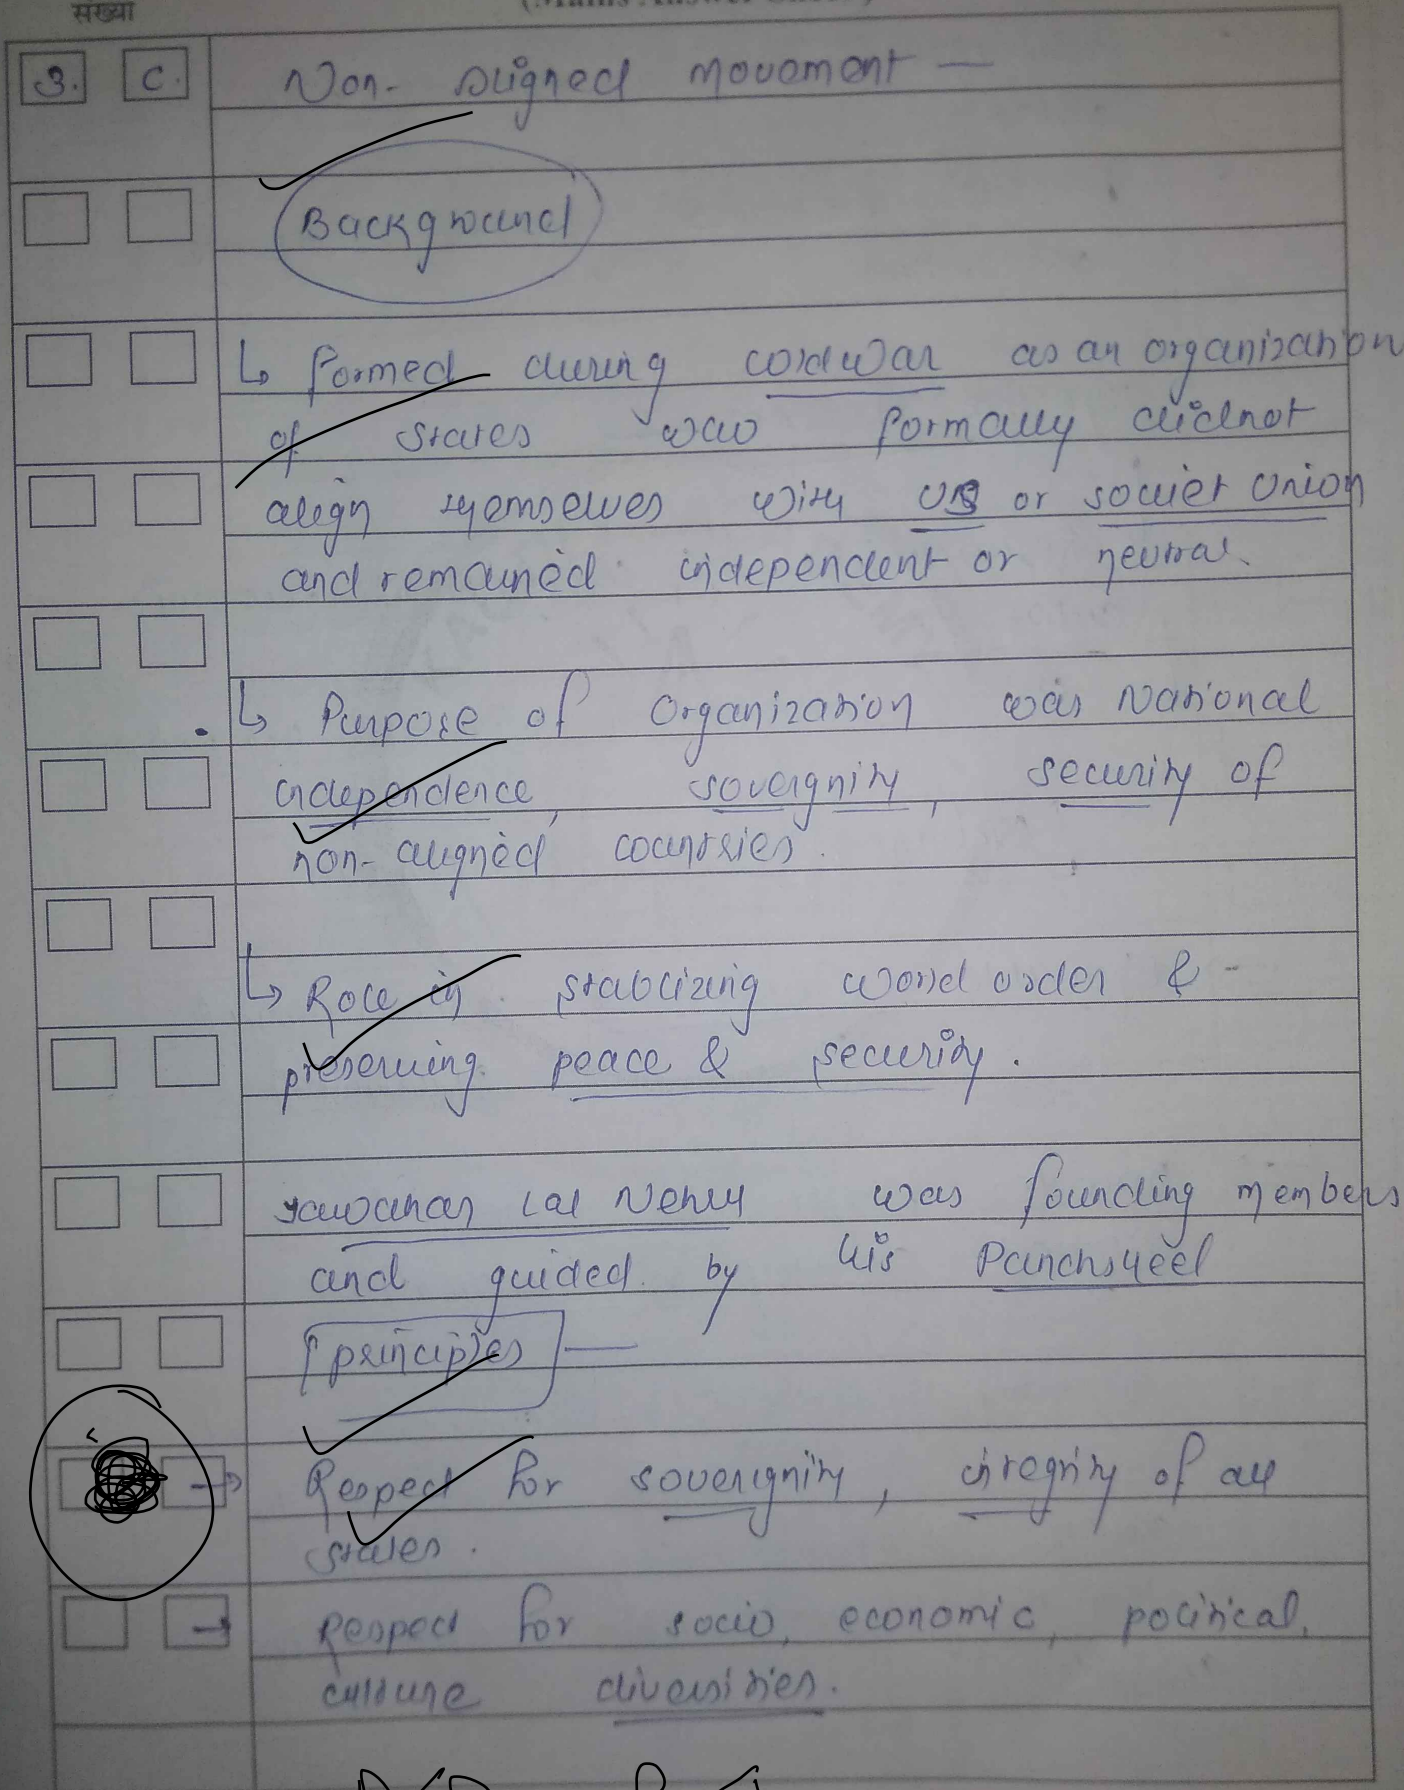 संख्या
3. C. Non-aligned movement —
Background
↳ formed during coldwar as an organization
of states who formally didnot
align themselves with US or soviet Union
and remained independent or neutral.
↳ Purpose of Organization was National
independence, soverignity, security of
non-aligned countries.
↳ Role in stablizing world order &
preserving peace & security.
Jawahar Lal Nehru was founding members
and guided by his Panchsheel
principles —
→ Respect for soverignity, integrity of all
states.
→ Respect for socio, economic, political,
culture diversities.